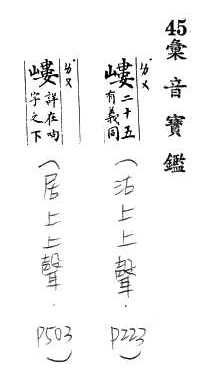 45彙音寶鑑
嶁 ㄌㄨ
二十五
有義同
(沽上上聲. P223)
嶁 ㄌㄨ
詳在呴
字之下
(居上上聲. P503)